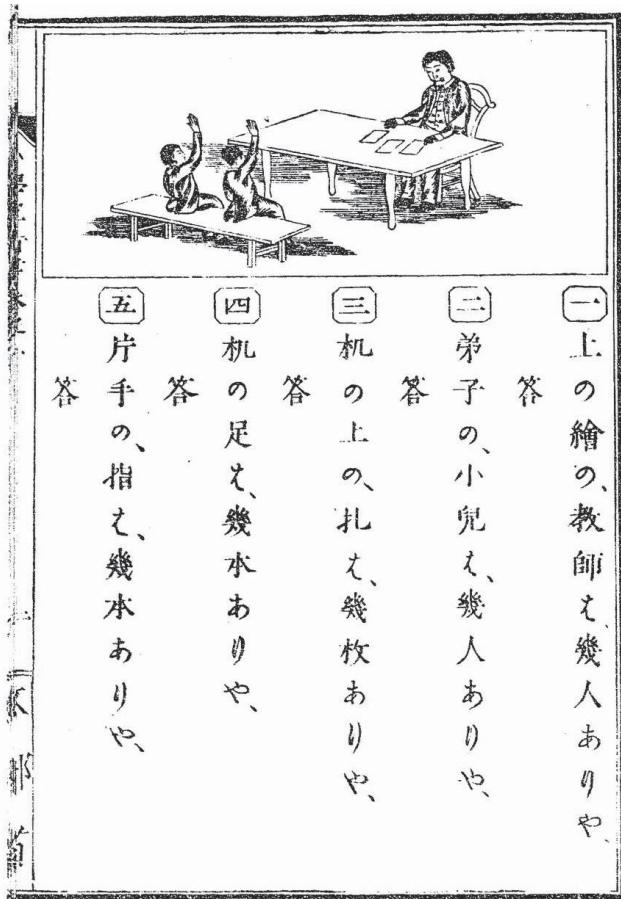 一 上の繪の、教師は、幾人ありや、
答
二 弟子の、小兒は、幾人ありや、
答
三 机の上の、札は、幾枚ありや、
答
四 机の足は、幾本ありや、
答
五 片手の、指は、幾本ありや、
答